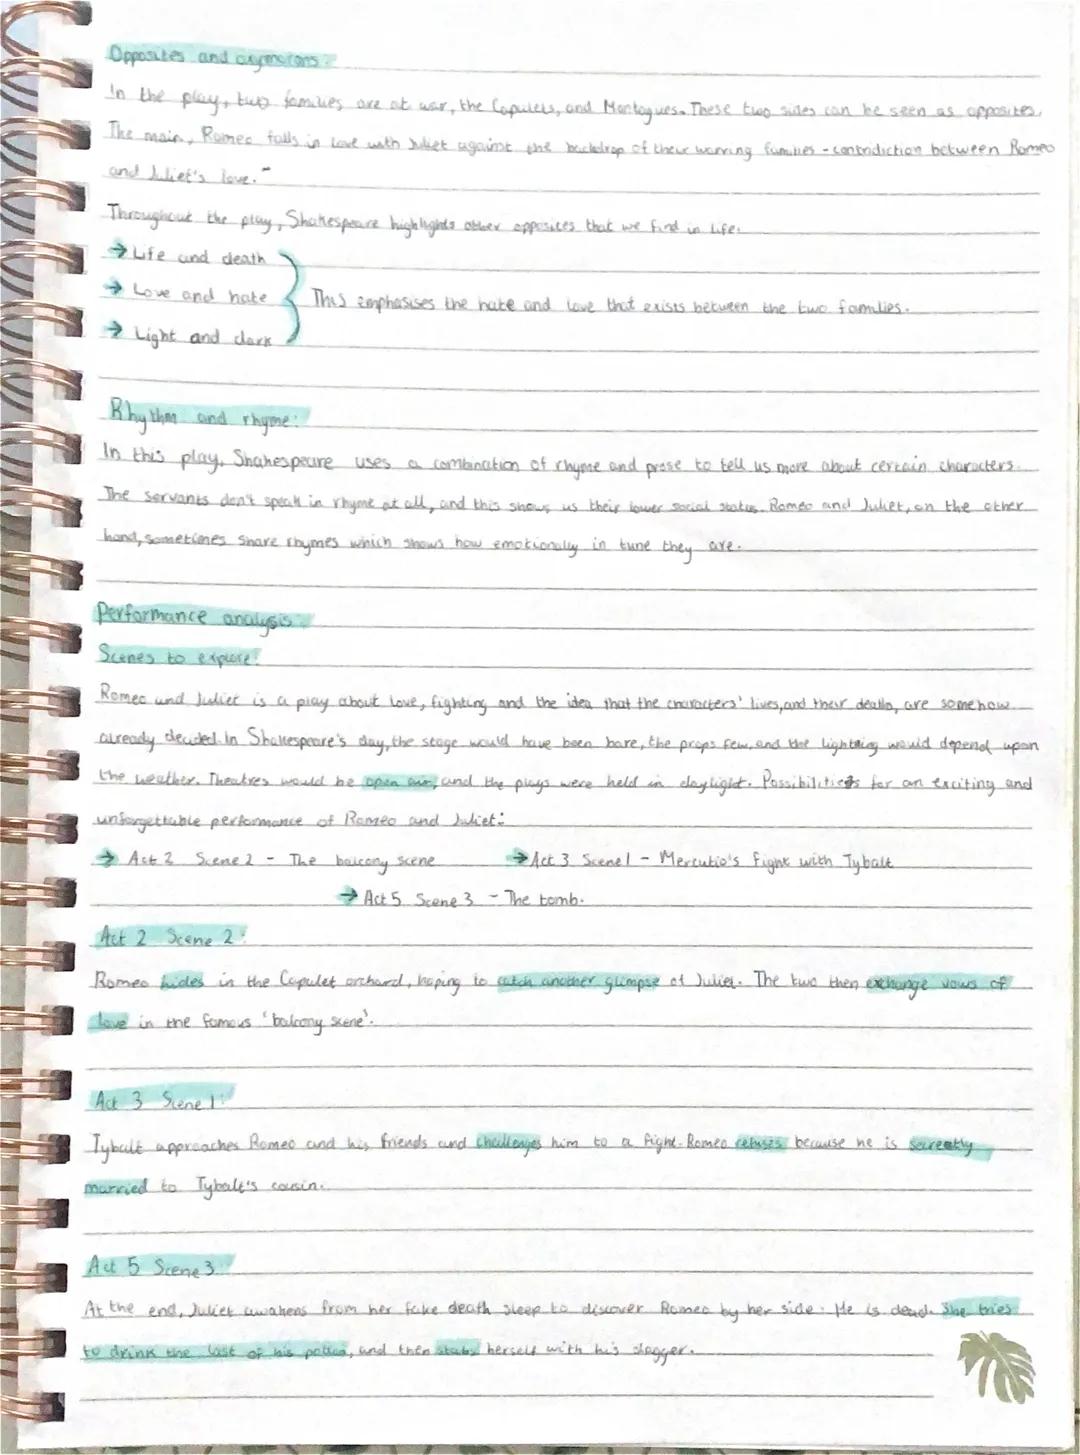 Opposites and oxymorons:
In the play, two families are at war, the Capulets, and Montagues. These two sides can be seen as opposites.
The main, Romeo falls in love with Juliet against the backdrop of their warring families - contridiction between Romeo
and Juliet's love."
Throughout the play, Shakespeare highlights other opposites that we find in life.
→ Life and death
→ Love and hate } This emphasises the hate and love that exists between the two families.
→ Light and dark
Rhythm and rhyme:
In this play, Shakespeare uses a combination of rhyme and prose to tell us more about certain characters.
The servants don't speak in rhyme at all, and this shows us their lower social status. Romeo and Juliet, on the other
hand, sometimes share rhymes which shows how emotionally in tune they are.
Performance analysis:
Scenes to explore:
Romeo and Juliet is a play about love, fighting and the idea that the characters' lives, and their deaths, are somehow
already decided. In Shakespeare's day, the stage would have been bare, the props few, and the lighting would depend upon
the weather. Theatres would be open air, and the plays were held in daylight. Possibilities for an exciting and
unforgettable performance of Romeo and Juliet:
→ Act 2 Scene 2 - The balcony scene → Act 3 Scene 1 - Mercutio's fight with Tybalt
→ Act 5 Scene 3 - The tomb.
Act 2 Scene 2:
Romeo hides in the Capulet orchard, hoping to catch another glimpse of Juliet. The two then exchange vows of
love in the famous 'balcony scene'.
Act 3 Scene 1:
Tybalt approaches Romeo and his friends and challenges him to a fight. Romeo refuses because he is secreetly
married to Tybalt's cousin.
Act 5 Scene 3:
At the end, Juliet awakens from her fake death sleep to discover Romeo by her side. He is dead. She tries
to drink the last of his potion, and then stabs herself with his dagger.